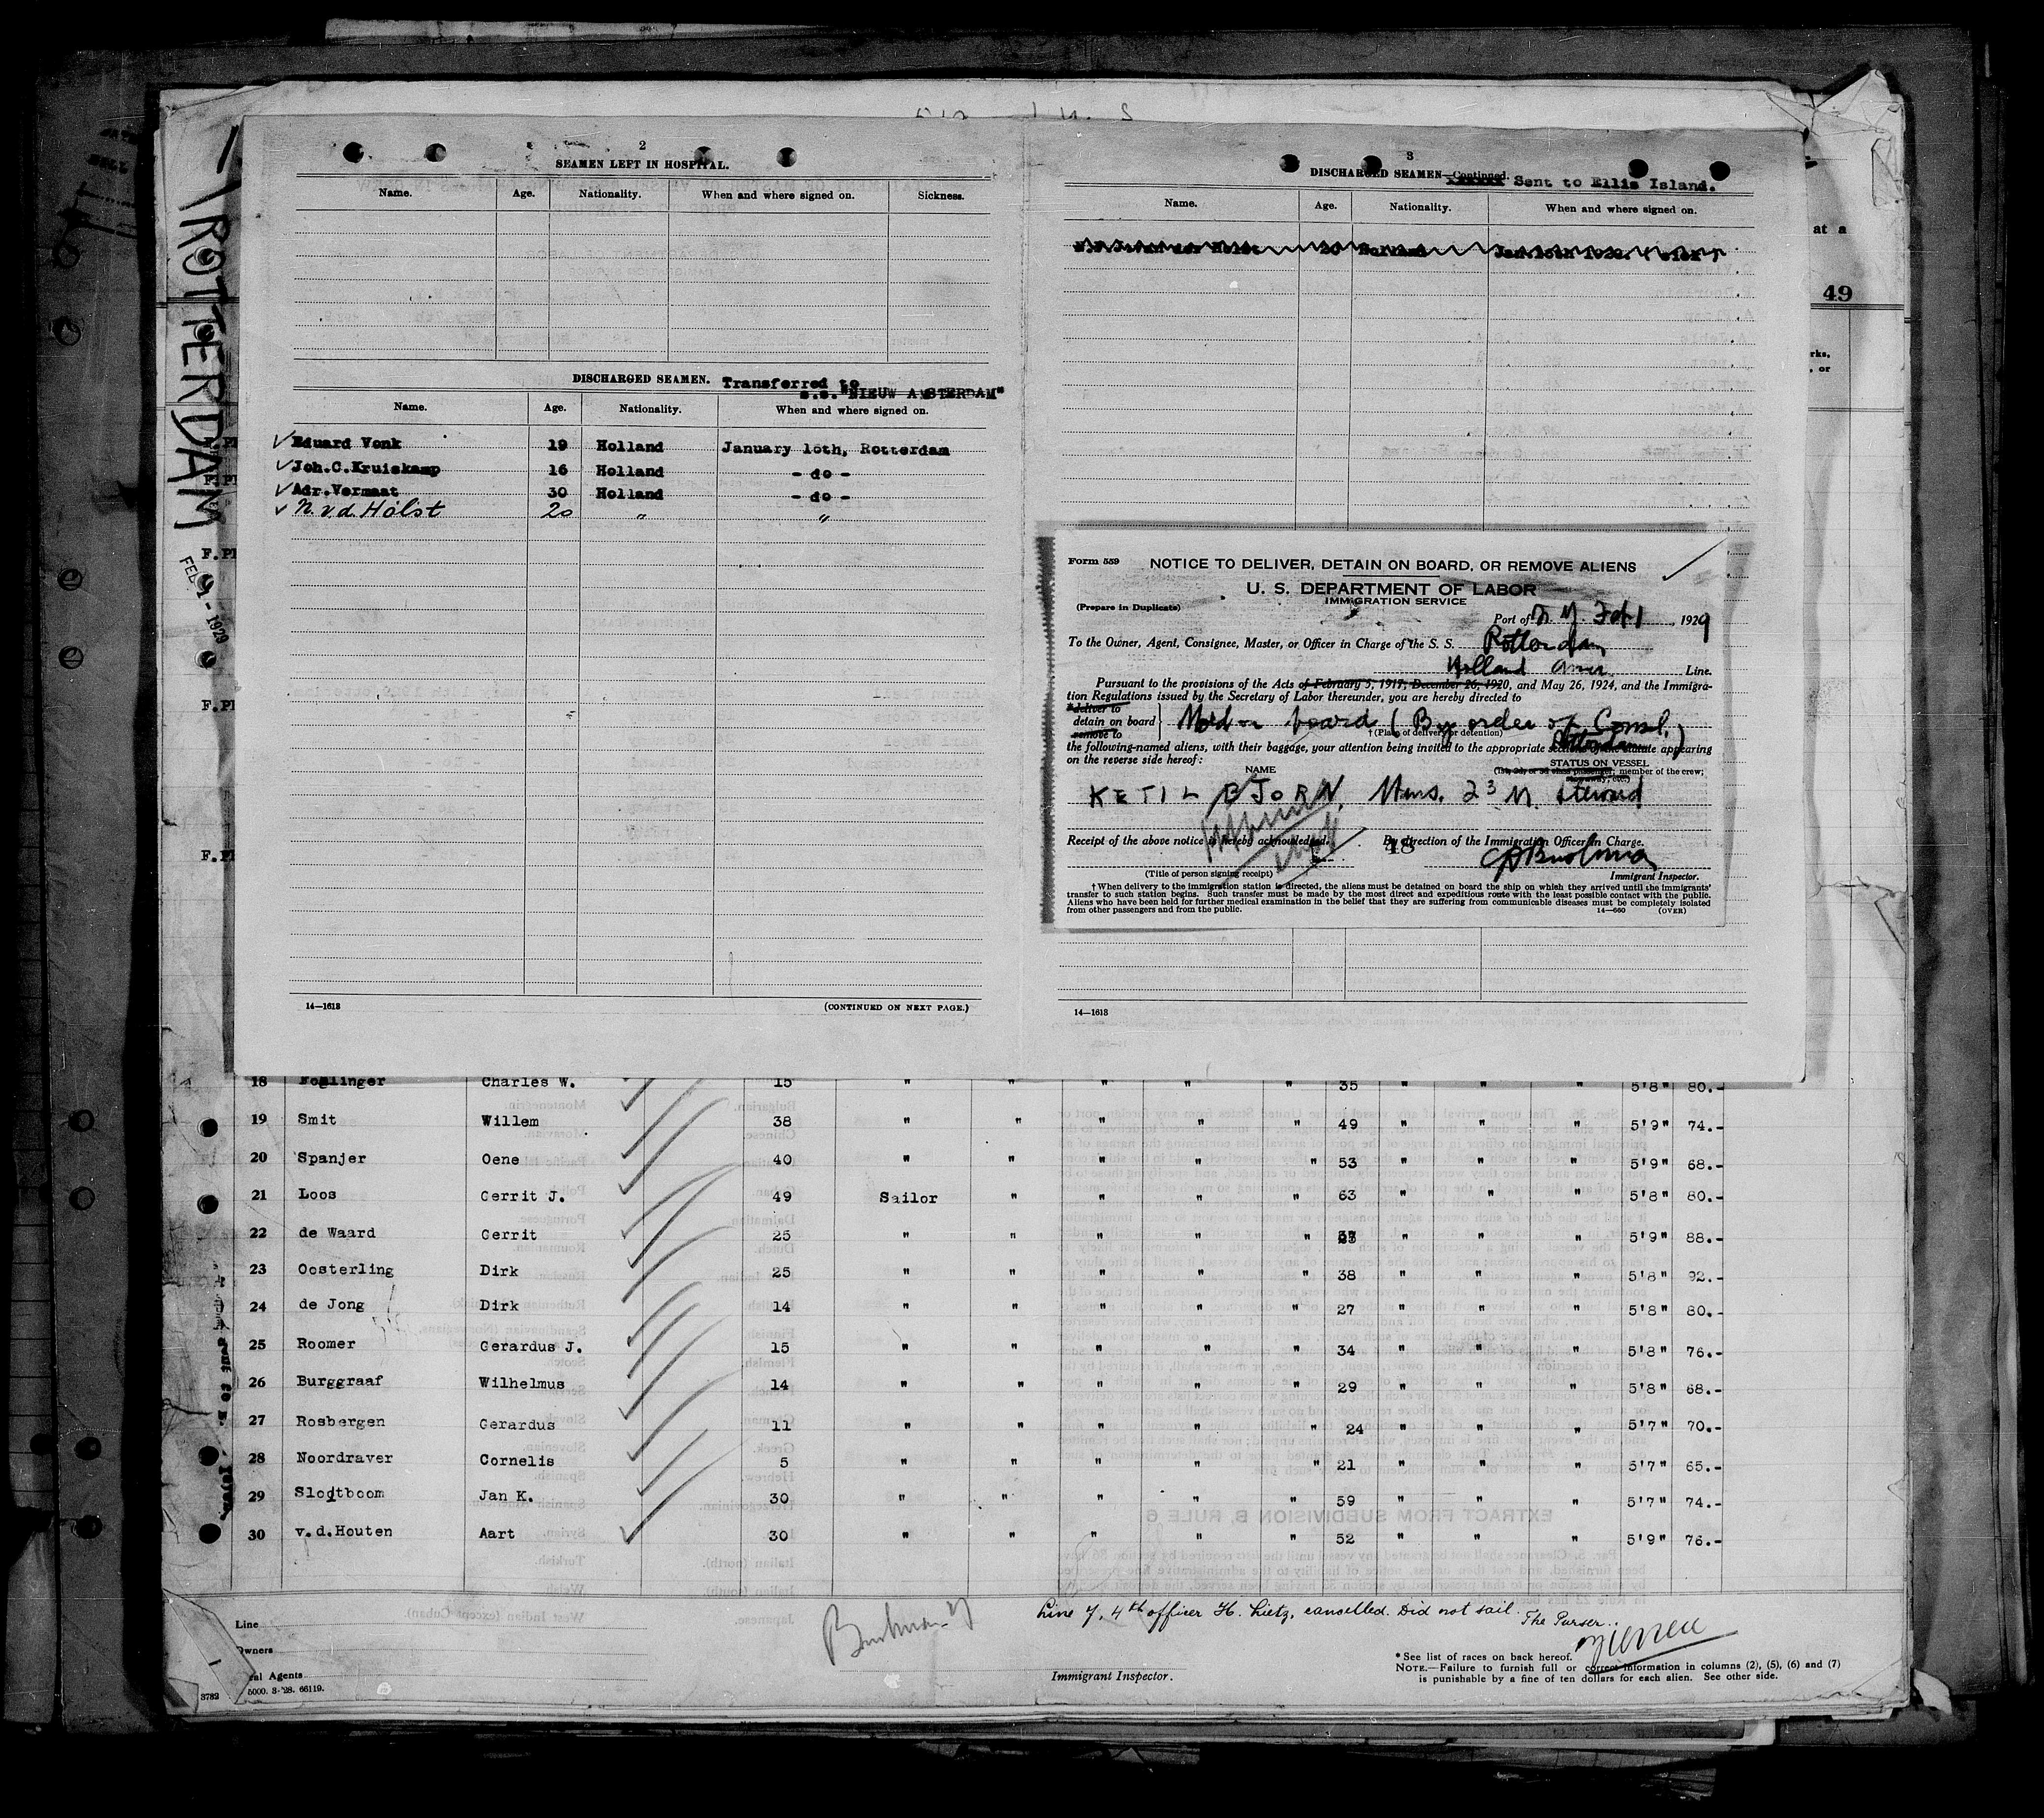 ROTTERDAM
FEB 1 - 1929
2
SEAMEN LEFT IN HOSPITAL.
Name. Age. Nationality. When and where signed on. Sickness.
DISCHARGED SEAMEN. Transferred to
s.s. "NIEUW AMSTERDAM"
Name. Age. Nationality. When and where signed on.
Eduard Vonk 19 Holland January 16th, Rotterdam
Joh.C.Kruiskamp 16 Holland - do -
Adr.Vermaat 30 Holland - do -
N. v.d. Holst 20 " "
14—1613 (CONTINUED ON NEXT PAGE.)
3
DISCHARGED SEAMEN—Continued. Sent to Ellis Island.
Name. Age. Nationality. When and where signed on.
van der Holst 20 Holland Jan.16th 1929.
Form 559 NOTICE TO DELIVER, DETAIN ON BOARD, OR REMOVE ALIENS
U. S. DEPARTMENT OF LABOR
IMMIGRATION SERVICE
(Prepare in Duplicate)
Port of N. Y. Feb 1, 1929
To the Owner, Agent, Consignee, Master, or Officer in Charge of the S. S. Rotterdam
Holland Amer. Line.
Pursuant to the provisions of the Acts of February 5, 1917, December 26, 1920, and May 26, 1924, and the Immigra-
tion Regulations issued by the Secretary of Labor thereunder, you are hereby directed to
*deliver to
detain on board } Hold on board (By order of Consl.
remove to † (Place of delivery or detention) Rotterdam)
the following-named aliens, with their baggage, your attention being invited to the appropriate sections of the statute appearing
on the reverse side hereof:
NAME STATUS ON VESSEL
(1st, 2d, or 3d class passenger, member of the crew,
stowaway, etc.)
KETIL BJORN. 23 M. Steward
Receipt of the above notice is hereby acknowledged. By direction of the Immigration Officer in Charge.
48
(Title of person signing receipt) Immigrant Inspector.
† When delivery to the immigration station is directed, the aliens must be detained on board the ship on which they arrived until the immigrants'
transfer to such station begins. Such transfer must be made by the most direct and expeditious route with the least possible contact with the public.
Aliens who have been held for further medical examination in the belief that they are suffering from communicable diseases must be completely isolated
from other passengers and from the public. 14—660 (OVER)
14—1613
at a
49
rks,
, or
18 Charles W. 15 " " " " " 35 " " " 5'8" 80.-
19 Smit Willem 38 " " " " " 49 " " " 5'9" 74.-
20 Spanjer Oene 40 " " " " " 53 " " " 5'9" 68.-
21 Loos Gerrit J. 49 Sailor " " " " 63 " " " 5'8" 80.-
22 de Waard Gerrit 25 " " " " " " " " 5'9" 88.-
23 Oosterling Dirk 25 " " " " " 38 " " " 5'8" 92.-
24 de Jong Dirk 14 " " " " " 27 " " " 5'8" 80.-
25 Roomer Gerardus J. 15 " " " " " 34 " " " 5'8" 76.-
26 Burggraaf Wilhelmus 14 " " " " " 29 " " " 5'8" 68.-
27 Rosbergen Gerardus 11 " " " " " 24 " " " 5'7" 70.-
28 Noordraver Cornelis 5 " " " " " 21 " " " 5'7" 65.-
29 Slootboom Jan K. 30 " " " " " 59 " " " 5'7" 74.-
30 v.d.Houten Aart 30 " " " " " 52 " " " 5'9" 76.-
Line
Owners
al Agents
5000. 3-'28. 66119.
3782
Line 7, 4th officer H. Lietz, cancelled. Did not sail.
The Purser.
Immigrant Inspector.
* See list of races on back hereof.
NOTE.—Failure to furnish full or correct information in columns (2), (5), (6) and (7)
is punishable by a fine of ten dollars for each alien. See other side.